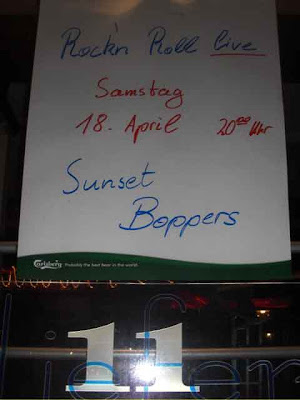 Rock'n Roll live
Samstag
18. April 20⁰⁰ Uhr
Sunset
Boppers
Carlsberg Probably the best beer in the world.
11